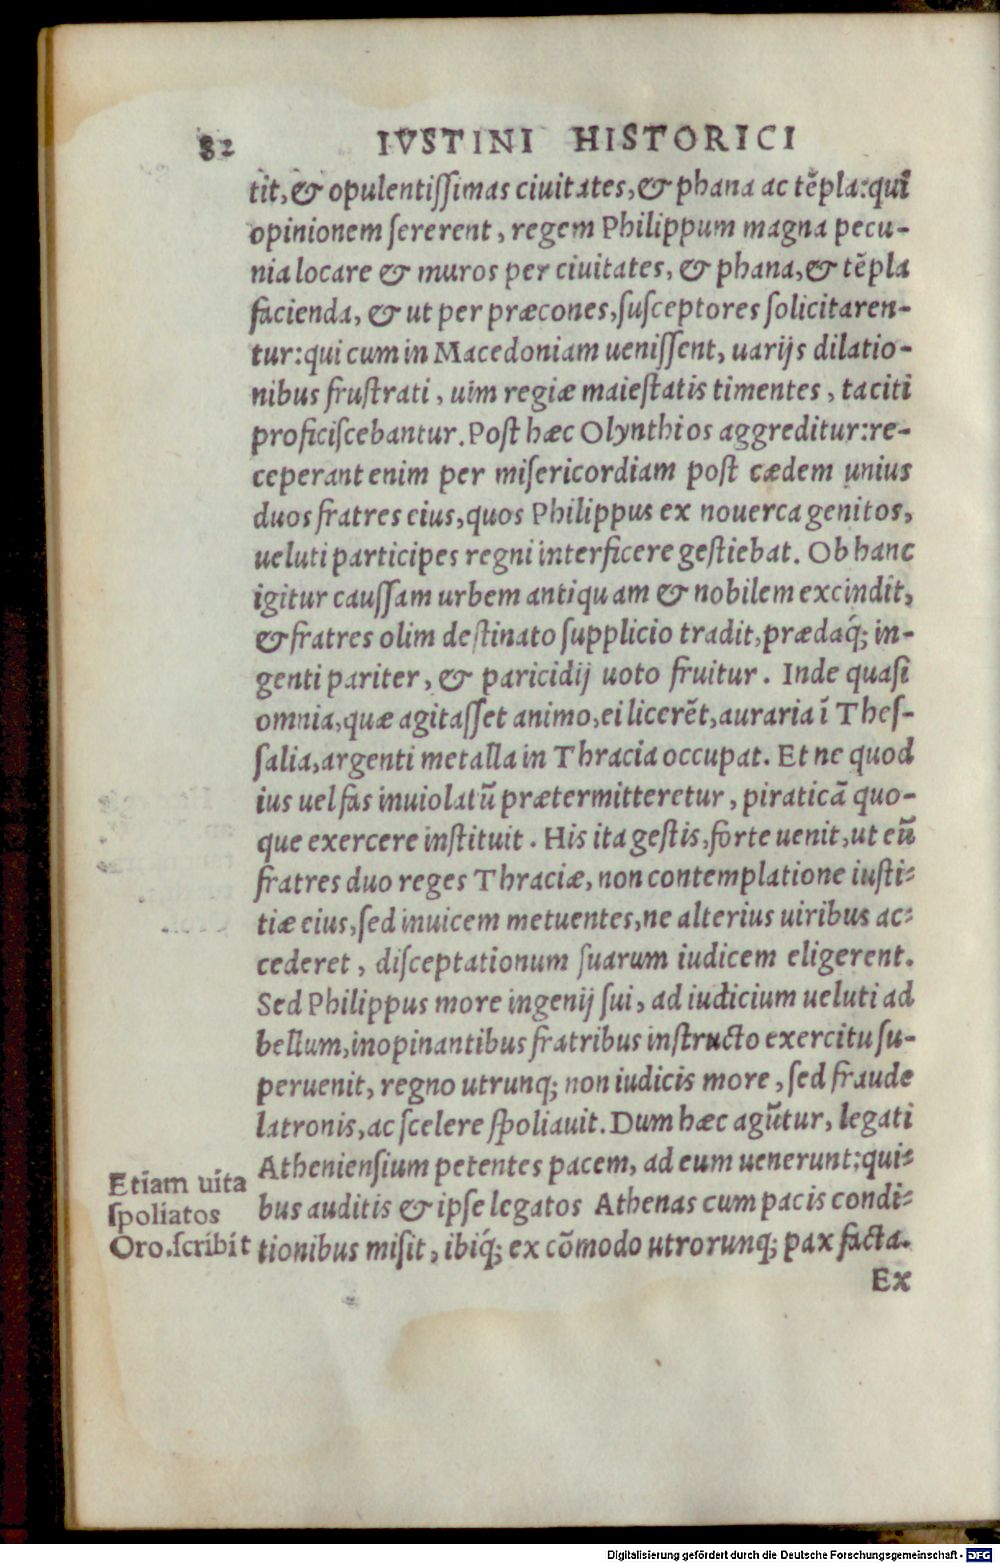 82 IVSTINI HISTORICI
tit, & opulentiſſimas ciuitates, & phana ac tẽpla: qui
opinionem ſererent, regem Philippum magna pecu-
nia locare & muros per ciuitates, & phana, & tẽpla
facienda, & ut per præcones, ſuſceptores ſolicitaren-
tur: qui cum in Macedoniam ueniſſent, uarijs dilatio-
nibus fruſtrati, uim regiæ maieſtatis timentes, taciti
proficiſcebantur. Poſt hæc Olynthios aggreditur: re-
ceperant enim per miſericordiam poſt cædem unius
duos fratres eius, quos Philippus ex nouerca genitos,
ueluti participes regni interficere geſtiebat. Ob hanc
igitur cauſſam urbem antiquam & nobilem excindit,
& fratres olim deſtinato ſupplicio tradit, prædaq́; in-
genti pariter, & paricidij uoto fruitur. Inde quaſi
omnia, quæ agitaſſet animo, ei licerẽt, auraria ĩ Theſ-
ſalia, argenti metalla in Thracia occupat. Et ne quod
ius uel fas inuiolatũ prætermitteretur, piraticã quo-
que exercere inſtituit. His ita geſtis, forte uenit, ut eũ
fratres duo reges Thraciæ, non contemplatione iuſti-
tiæ eius, ſed inuicem metuentes, ne alterius uiribus ac-
cederet, diſceptationum ſuarum iudicem eligerent.
Sed Philippus more ingenij ſui, ad iudicium ueluti ad
bellum, inopinantibus fratribus inſtructo exercitu ſu-
peruenit, regno utrunq; non iudicis more, ſed fraude
latronis, ac ſcelere ſpoliauit. Dum hæc agũtur, legati
Athenienſium petentes pacem, ad eum uenerunt: qui-
bus auditis & ipſe legatos Athenas cum pacis condi-
tionibus miſit, ibiq́; ex cõmodo utrorunq; pax facta.
Ex
Etiam uita
ſpoliatos
Oro. ſcribit
Digitalisierung gefördert durch die Deutsche Forschungsgemeinschaft - DFG